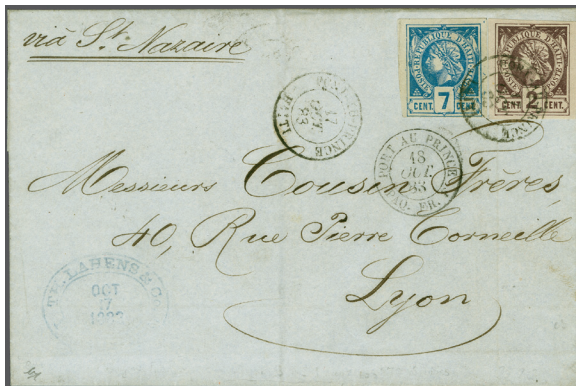 via St. Nazaire
REPUBLIQUE D'HAITI
CENT. 7 CENT.
REPUBLIQUE D'HAITI
CENT. 2 CENT.
PORT-AU-PRINCE HAITI
17 OCT 83
PORT AU PRINCE
18
OCT.
83
PAQ. FR.
Messieurs Cousin Frères,
40, Rue Pierre Corneille
Lyon
TH. LAHENS & Co
OCT
17